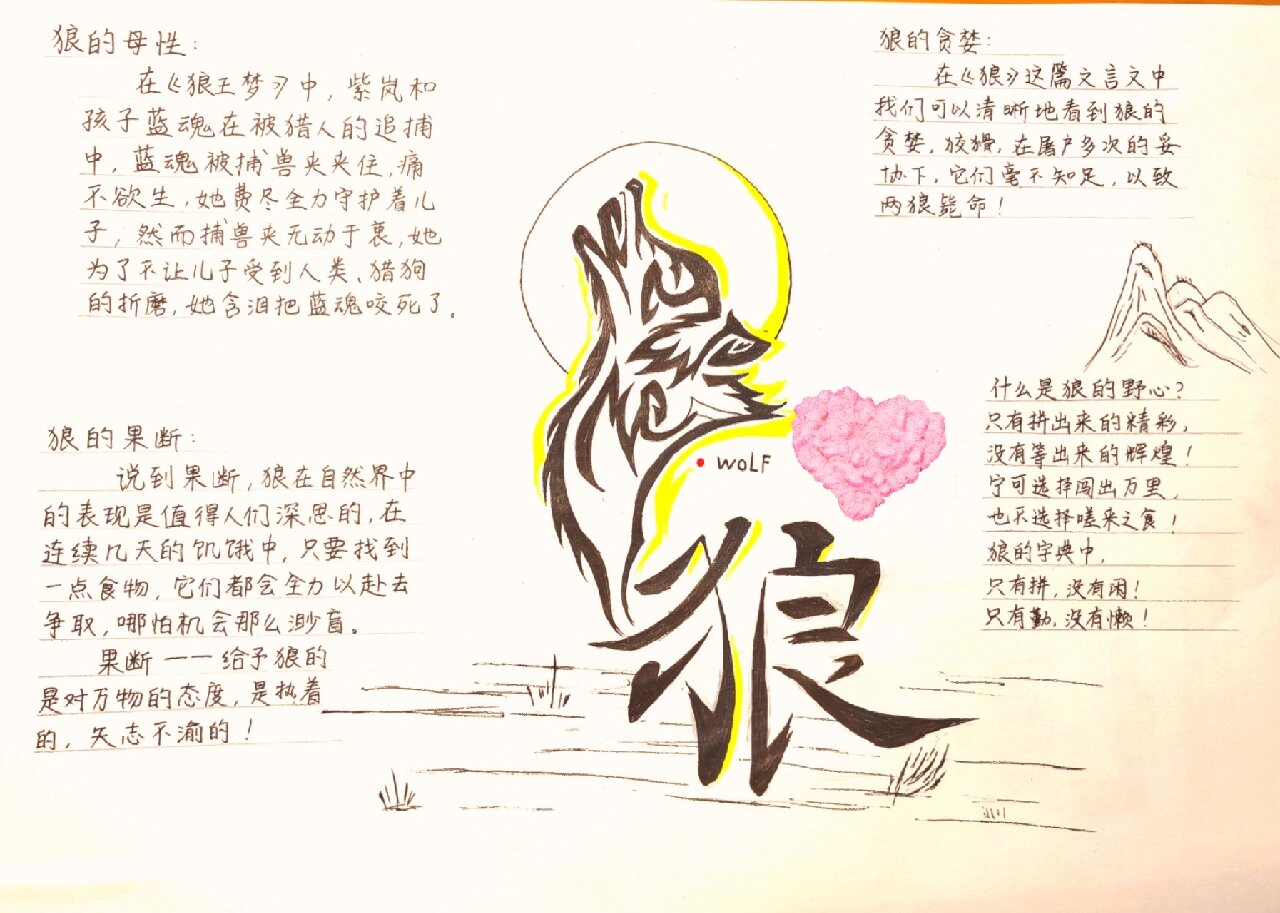 狼的母性:
在《狼王梦》中，紫岚和
孩子蓝魂在被猎人的追捕
中，蓝魂被捕兽夹夹住，痛
不欲生，她费尽全力守护着儿
子，然而捕兽夹无动于衷，她
为了不让儿子受到人类、猎狗
的折磨，她含泪把蓝魂咬死了。
狼的果断:
说到果断，狼在自然界中
的表现是值得人们深思的，在
连续几天的饥饿中，只要找到
一点食物，它们都会全力以赴去
争取，哪怕机会那么渺盲。
果断——给予狼的
是对万物的态度，是执着
的，矢志不渝的！
WOLF
狼
狼的贪婪:
在《狼》这篇文言文中
我们可以清晰地看到狼的
贪婪，狡猾，在屠户多次的妥
协下，它们毫不知足，以致
两狼毙命！
什么是狼的野心？
只有拼出来的精彩，
没有等出来的辉煌！
宁可选择闯出万里，
也不选择嗟来之食！
狼的字典中，
只有拼，没有困！
只有勤，没有懒！